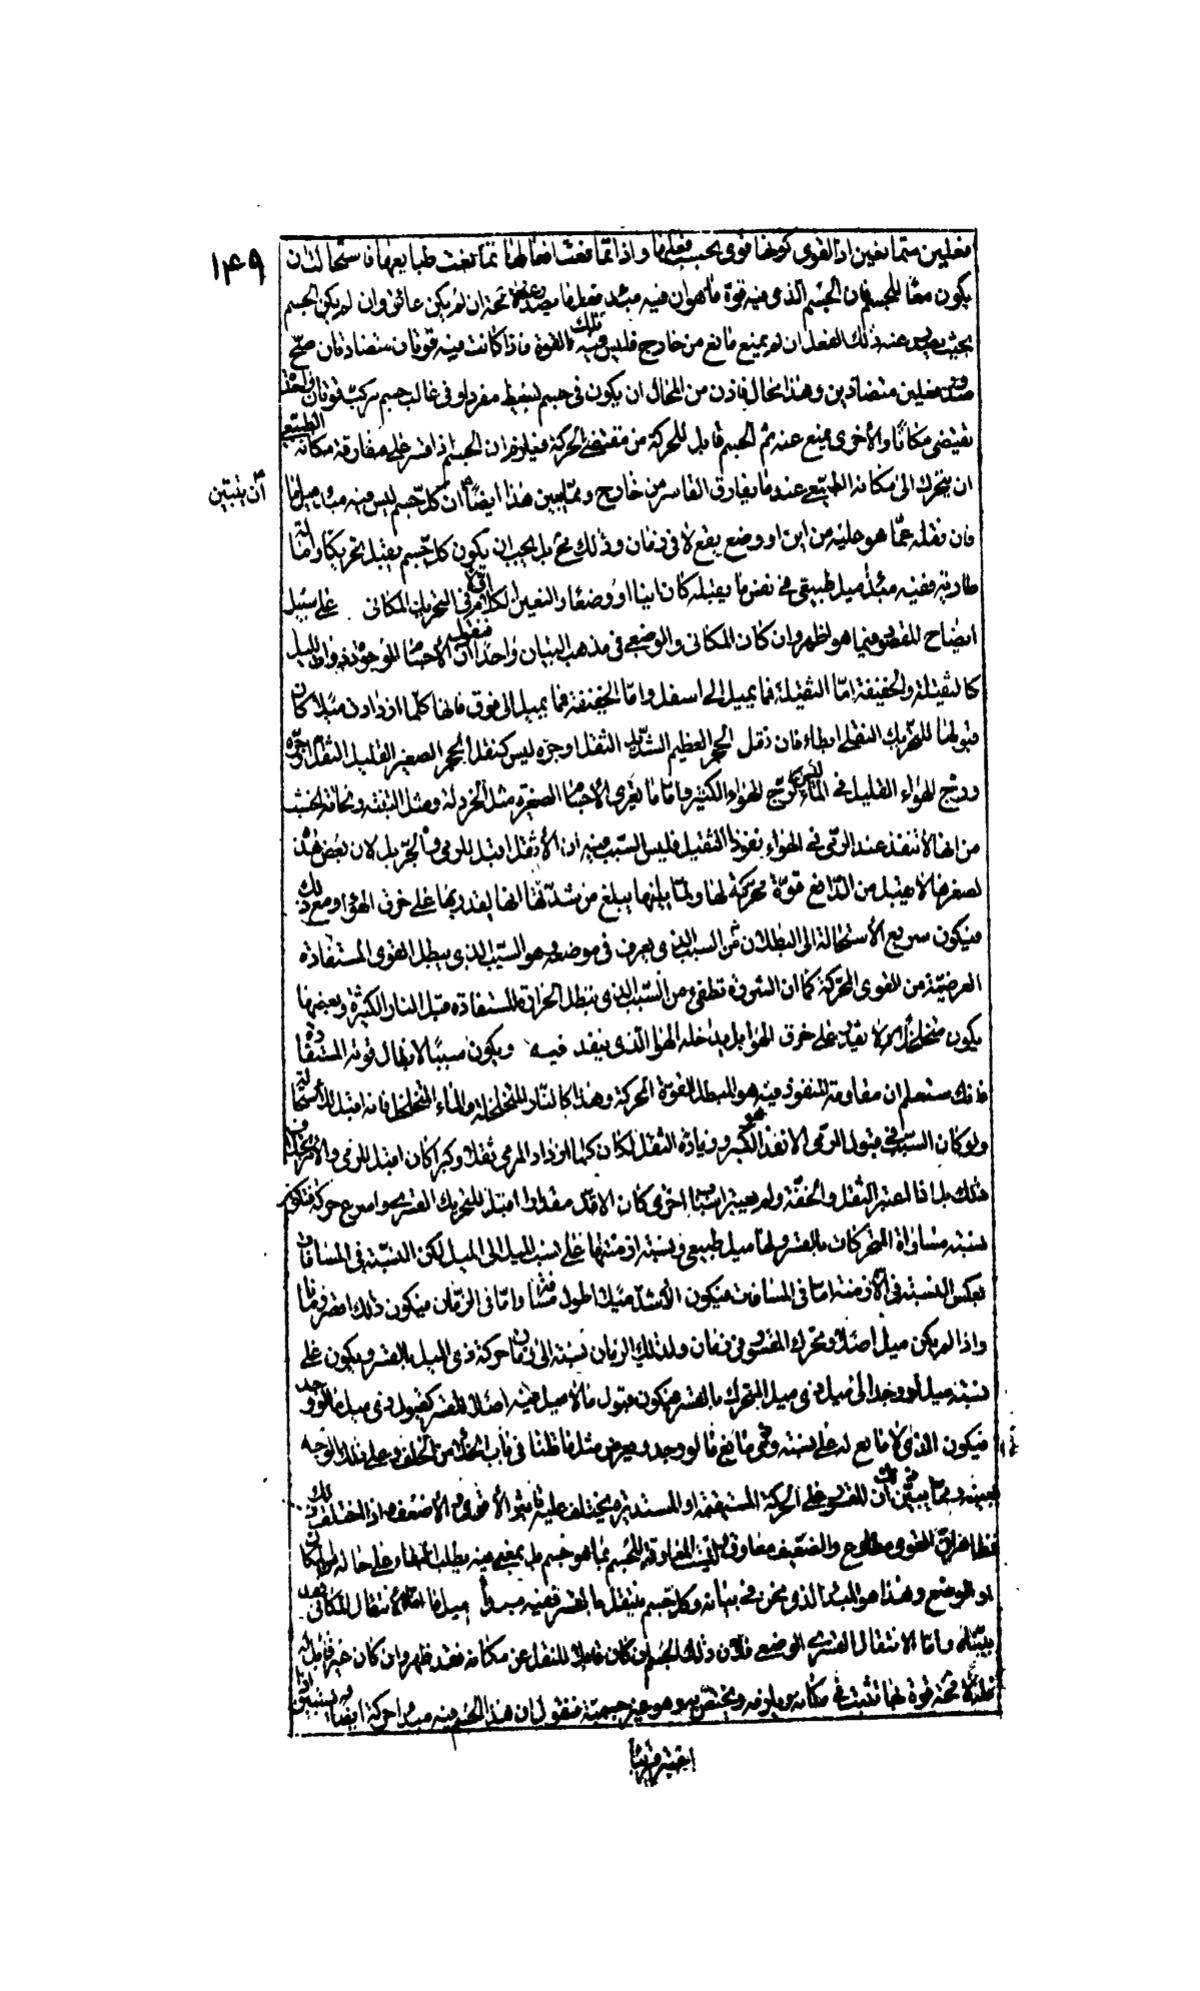 ١٤٩
فعلين متمانعين اذ القوى كونها قوى بحسب فعلها واذا تمانعت افعالها تمانعت طبايعها فاستحالت ان
يكون معا للجسم فان الجسم الذى فيه قوة ما هو ان فيه مبدء فعل ما يصدر عنه لا محة ان لم يكن عائق وان لم يكن الجسم
بحيث يصدر عنه ذلك الفعل ان لم يمنع مانع من خارج فليس فيه تلك القوة فاذا كانت فيه قوتان متضادتان صح
صدور فعلين متضادين وهذا محال فاذن من المحال ان يكون فى جسم بسيط مفرد او فى غالب جسم مركب قوتان واحدة
تقتضى مكانا والأخرى يمنع عنه ثم الجسم قابل للحركة من مقتضى الحركة فيلزم ان الجسم اذا قسر على مفارقة مكانه الطبيعى
ان يتحرك الى مكانه الطبيعى عندما يفارق القاسر من خارج ومما يبين هذا ايضا ان كل جسم ليس فيه مبدء ميل ما
آن يتبين
فان نقله عما هو عليه من اين او وضع يقع لا فى زمان وذلك مح بل يجب ان يكون كل جسم يقبل تحريكا وامالة
طارية ففيه مبدأ ميل طبيعى فى نفس ما يقبله كان اينا او وضعا ولنعين الكلام فى التحريك المكانى على سبيل
ايضاح للمقصود فيما هو اظهر وان كان المكانى والوضعى فى مذهب البيان واحدا فنقول ان الأجسام الموجودة ذوات الميل
كالثقيلة والخفيفة اما الثقيلة فما يميل الى اسفل واما الخفيفة فما يميل الى فوق فانها كلما ازدادت ميلا كان
قبولها للتحريك النقلى ابطاء فان نقل الحجر العظيم الشديد الثقل او جره ليس كنقل الحجر الصغير القليل الثقل او جره
وزج الهواء القليل فى الماء ليس كزج الهواء الكثير واما ما يعرض الأجسام الصغيرة مثل الخردلة ومثل التبنة ونحاتة الخشب
من انها لا تنفذ عند الرمى فى الهواء نفوذ الثقيل فليس السبب فيه ان الأثقل اقبل للرمى والجر بل لان بعض هذه
لصغرها لا يقبل من الدافع قوة محركة لها ولما يليها يبلغ من شدتها انها يقدر بها على خرق الهواء ومع ذلك
فيكون سريع الأستحالة الى البطلان من السبب الذى يعرف فى موضعه وهو السبب الذى يبطل القوى المستفادة
العرضية من القوى المحركة كما ان الشررة تطفئ من السبب الذى تبطل الحرارة المستفادة قبل النار الكثيرة وبعضها
يكون متخلخلا لا يقدر على خرق الهواء بل يداخله الهوا الذى ينفذ فيه ويكون سببا لابطال قوته المستفادة
فانك ستعلم ان مقاومة المنفوذ فيه هو المبطل للقوة المحركة وهذا كالنار المتخلخلة والماء المتخلخل فانه اقبل للاستحالة
ولو كان السبب فى قبول الرمى الانفذ هو الكبر وزيادة الثقل لكان كلما ازداد المرمى ثقلا وكبرا كان اقبل للرمى والأمر بخلاف
ذلك بل اذا اعتبر الثقل والخفة ولم يعتبر اسباب اخرى كان الاقل مقدارا اقبل للتحريك القسرى واسرع حركة فتكون
نسبة مسافات المتحركات بالقسر ولها ميل طبيعى ونسبة ازمنتها على نسب الميل الى الميل لكن النسبة فى المسافات
بعكس النسبة فى الأزمنة اما فى المسافات فيكون الأشد ميلا اطول مسافة واما فى الزمان فيكون ذلك اقصر زمانا
واذا لم يكن ميل اصلا وتحرك المقسور فى زمان ولذلك الزمان نسبة الى زمان حركة ذى الميل بالقسر ويكون على
نسبة ميل لو وجد الى ميل ذى ميل المتحرك بالقسر فيكون قبول ما لا ميل فيه اصلا للقسر كقبول ذى ميل ما لو وجد
فيكون الذى لا مانع له على نسبة ذى مانع ما لو وجد ويعرض مثل ما قلنا فى باب الخلاء من الخلف وعلى ذلك الوجه
بعينه ومما يبين ان للقسر على الحركة المستقيمة او المستديرة يختلف عليه تاثير الأقوى والأضعف واذا اختلف ذلك
فظاهر ان القوى مطاوع والضعيف معاوق وليست المعاوقة للجسم بما هو جسم بل بمعنى فيه يطلب البقاء على حاله من المكان
او الوضع وهذا هو المبدا الذى نحن فى بيانه وكل جسم ينتقل بالقسر ففيه مبدأ ميل ما اما الأنتقال المكانى فقد
بيناه واما الانتقال القسرى الوضعى فلان ذلك الجسم ان كان قابلا للنقل عن مكانه فقد ظهر وان كان غير قابل له
فله لا محة قوة لها تثبت فى مكانه ويلزمه ويختص به وهو غير جسميته فنقول ان هذا الجسم فيه مبداء حركة ايضا